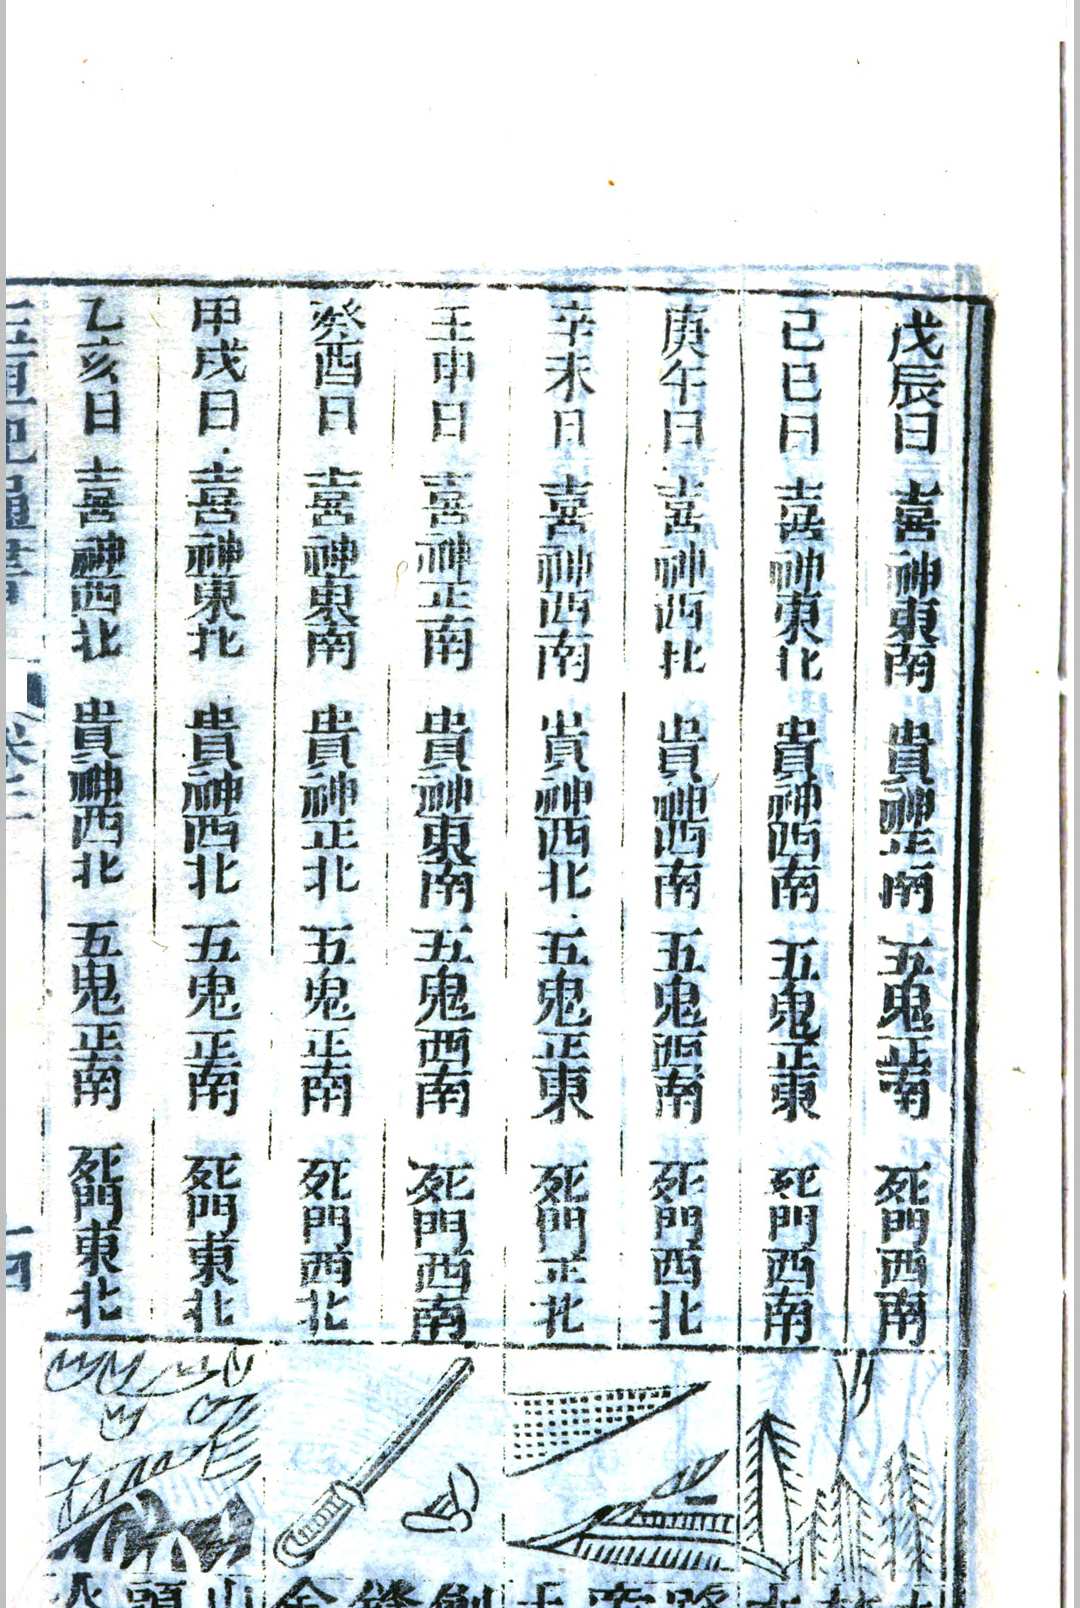 戊辰日 喜神東南 貴神正南 五鬼正南 死門西南
己巳日 喜神東北 貴神西南 五鬼正東 死門西南
庚午日 喜神西北 貴神西南 五鬼西南 死門西北
辛未日 喜神西南 貴神西北 五鬼正東 死門正北
壬申日 喜神正南 貴神東南 五鬼西南 死門西南
癸酉日 喜神東南 貴神正北 五鬼正南 死門西北
甲戌日 喜神東北 貴神西北 五鬼正南 死門東北
乙亥日 喜神西北 貴神西北 五鬼正南 死門東北